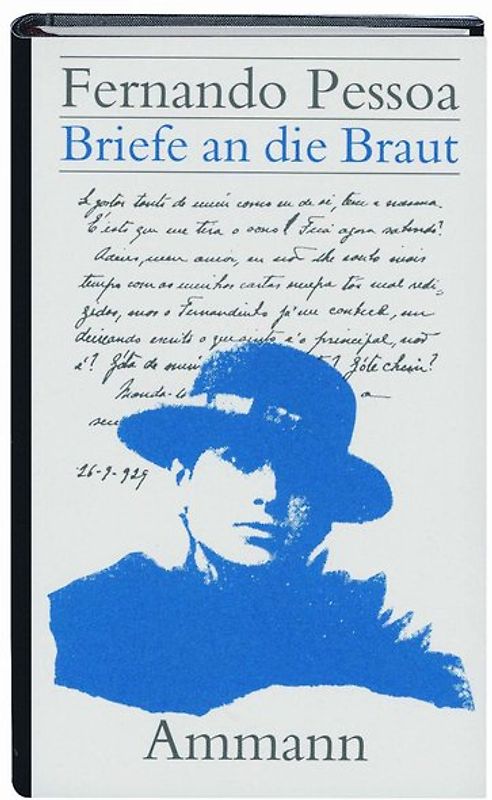 Fernando Pessoa
Briefe an die Braut
gostar tanto de mim como eu de si, tem a mesma
É isto que me tira o sono! Ficá agora sabendo?
Adeus, meu amor, eu não lhe
tempo com as minhas cartas tão mal redi-
gidas, mas o Fernandinho já me conhece, em
escrito o que sinto é o principal, não
é? de mim ?
Manda-
26-9-929
Ammann